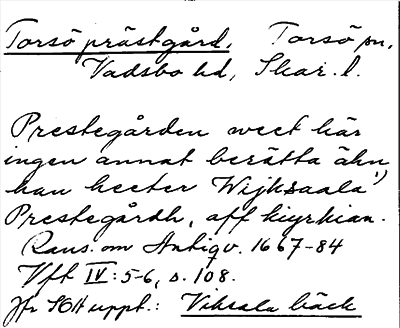 Torsö prästgård, Torsö sn,
Vadsbo hd, Skar. l.
Prestegården weet här
ingen annat berätta ähn
han heeter Wijksaala¹)
Prestegårdh, aff kiyrkian.
Rans. om Antiqv. 1667-84
Vft IV:5-6, s. 108.
Jfr uppt.: Viksala bäck